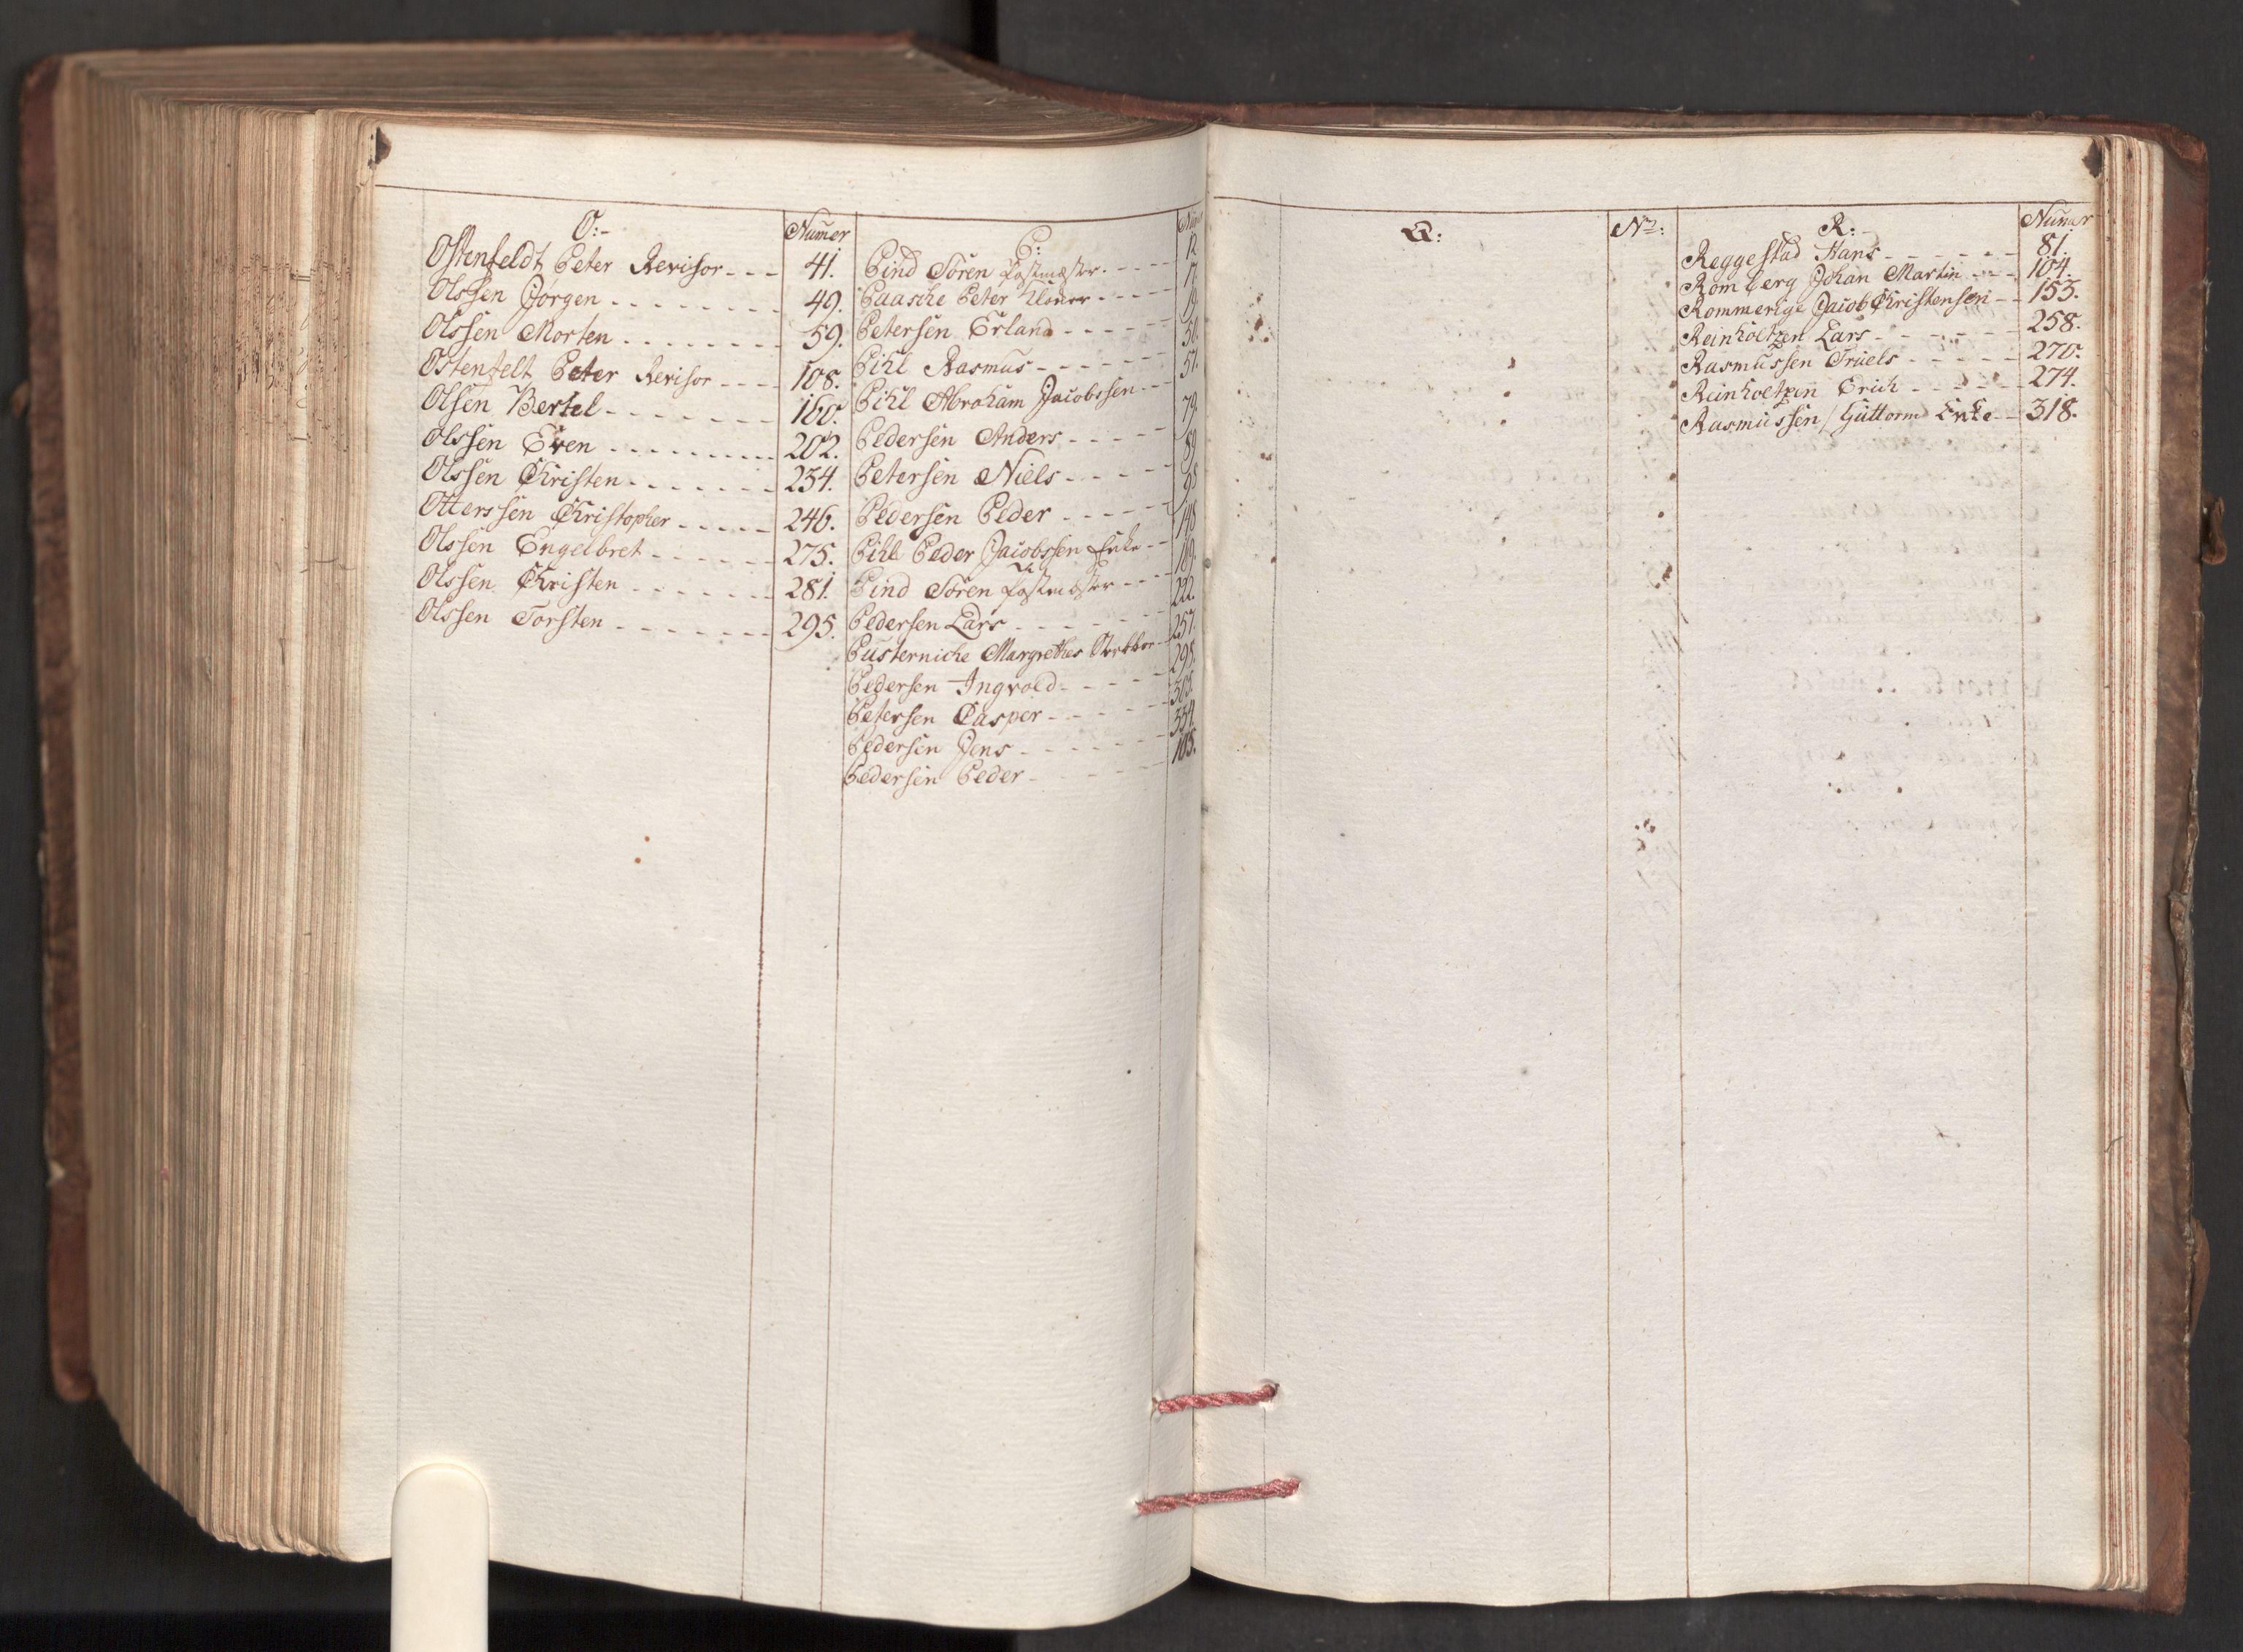 O:-
Numer
Ostenfeldt Peter Revisor - - - 41.
Olssen Jørgen - - - - - - - 49.
Olssen Morten - - - - - - - 59.
Ostenfelt Peter Revisor - - - - 108.
Olsen Bertel - - - - - - - 160.
Olssen Even - - - - - - - - - 202.
Olssen Christen - - - - - - - 234.
Otterssen Christopher - - - - - 246.
Olssen Engelbret - - - - - - 275.
Olssen Christen - - - - - - - 281.
Olssen Torsten - - - - - - - 295.
P:
Pind Sören Postmester - - - - 12
Paasche Peter Klocker - - - - 17
Petersen Erland - - - - - 19.
Pihl Rasmus - - - - - - 50.
Pihl Abraham Jacobssen - - - 51.
Pedersen Anders - - - - - 79
Petersen Niels - - - - - 89
Pedersen Peder - - - - - 98
Pihl Peder Jacobssen Enke - - 148
Pind Sören Postmester - - - 169.
Pedersen Lars - - - - - - 222.
Pusterniche Margrethes - - 257.
Pedersen Ingvold - - - - - 298.
Petersen Casper - - - - - 303.
Pedersen Jens - - - - - - 334.
Pedersen Peder - - - - - - 103.
Q:
No:
R:-
Numer
Reggestad Hans - - - - - - 81.
Romberg Johan Martin - - - 104.
Rommerige Jacob Christensen - - 153.
Reinholtzen Lars - - - - - - 258.
Rasmussen Truels - - - - - 270.
Reinholtzen Erich - - - - - - 274.
Rasmussen / Guttorm Enke - - 318.